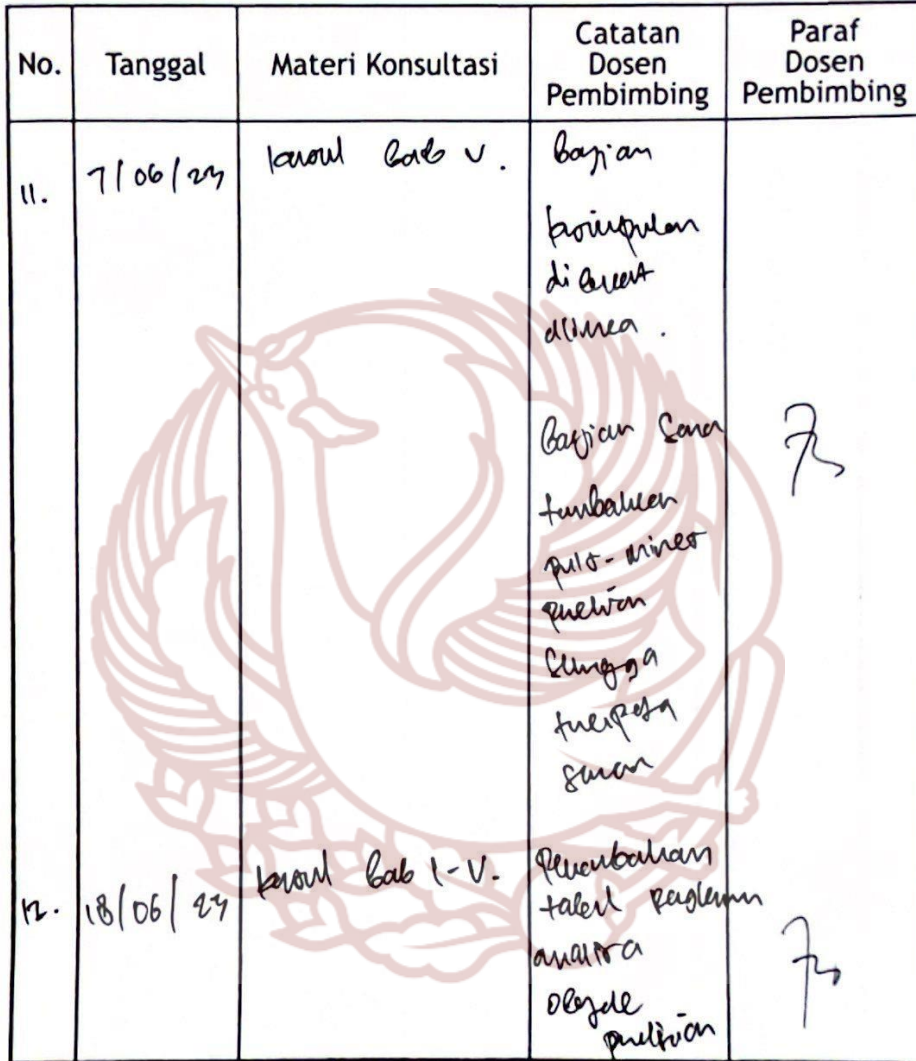 No. Tanggal Materi Konsultasi Catatan Dosen Pembimbing Paraf Dosen Pembimbing
11. 7/06/24 Bab V. Bagian
kesimpulan
dibuat
alinea.
Bagian Saran
tambahkan
penelitian
sehingga
saran
12. 18/06/24 Bab I-V. Penambahan
tabel
analisa
objek
penelitian